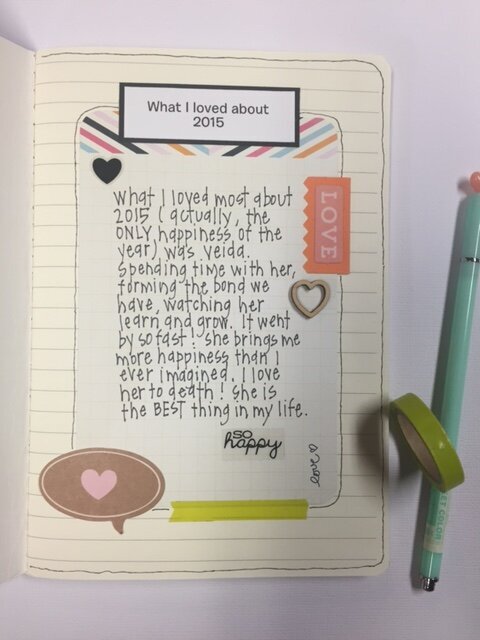 What I loved about
2015
What I loved most about
2015 (actually, the
ONLY happiness of the
year) was Veida.
Spending time with her,
forming the bond we
have, watching her
learn and grow. It went
by so fast! She brings me
more happiness than I
ever imagined. I love
her to death! She is
the BEST thing in my life.
LOVE
SO
happy
love